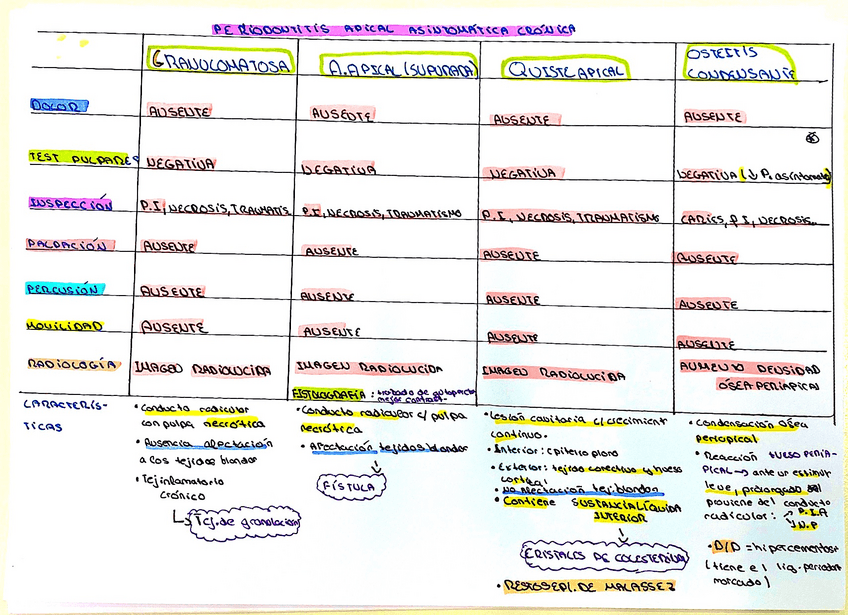 PERIODONTITIS APICAL ASINTOMÁTICA CRÓNICA
GRANULOMATOSA A.APICAL (SUPURADA) QUISTE APICAL OSTEITIS
CONDENSANTE
DOLOR AUSENTE AUSENTE AUSENTE AUSENTE
TEST PULPARES NEGATIVA NEGATIVA NEGATIVA NEGATIVA (↓ P. asintomate)
INSPECCIÓN P.I, NECROSIS, TRAUMATIS P.I, NECROSIS, TRAUMATISMO P.I, NECROSIS, TRAUMATISMO CARIES, P.I, NECROSIS..
PALPACIÓN AUSENTE AUSENTE AUSENTE AUSENTE
PERCUSIÓN AUSENTE AUSENTE AUSENTE AUSENTE
MOVILIDAD AUSENTE AUSENTE AUSENTE AUSENTE
RADIOLOGÍA IMAGEN RADIOLUCIDA IMAGEN RADIOLUCIDA IMAGEN RADIOLUCIDA AUMENTO DENSIDAD
ÓSEA PERIAPICAL
FISTULOGRAFÍA: trazado de gutapercha
mejor contraste
CARACTERÍS-
TICAS
• Conducto radicular
con pulpa necrótica
• Ausencia afectación
a los tejidos blandos
• Tej inflamatorio
crónico
↳ Tej. de granulacion
• Conducto radicular c/ pulpa
necrótica
• Afectación tejidos blandos
↓
FÍSTULA
• Lesión cavitaria c/ crecimient
continuo.
• Interior: epitelio plano
• Exterior: tejido conectivo y hueso
cortical
• No afectación tej blandos
• Contiene SUSTANCIA LÍQUIDA
INTERIOR
↓
CRISTALES DE COLESTERINA
• RESTOS EPI. DE MALASSEZ
• Condensación ósea
periapical
• Reacción HUESO PERIA-
PICAL → ante un estimulo
leve, prolongado
proviene del conducto
radicular: ↗ P.I.A
↘ N.P
• D/D = hipercementosis
(tiene el lig. periodont
marcado)